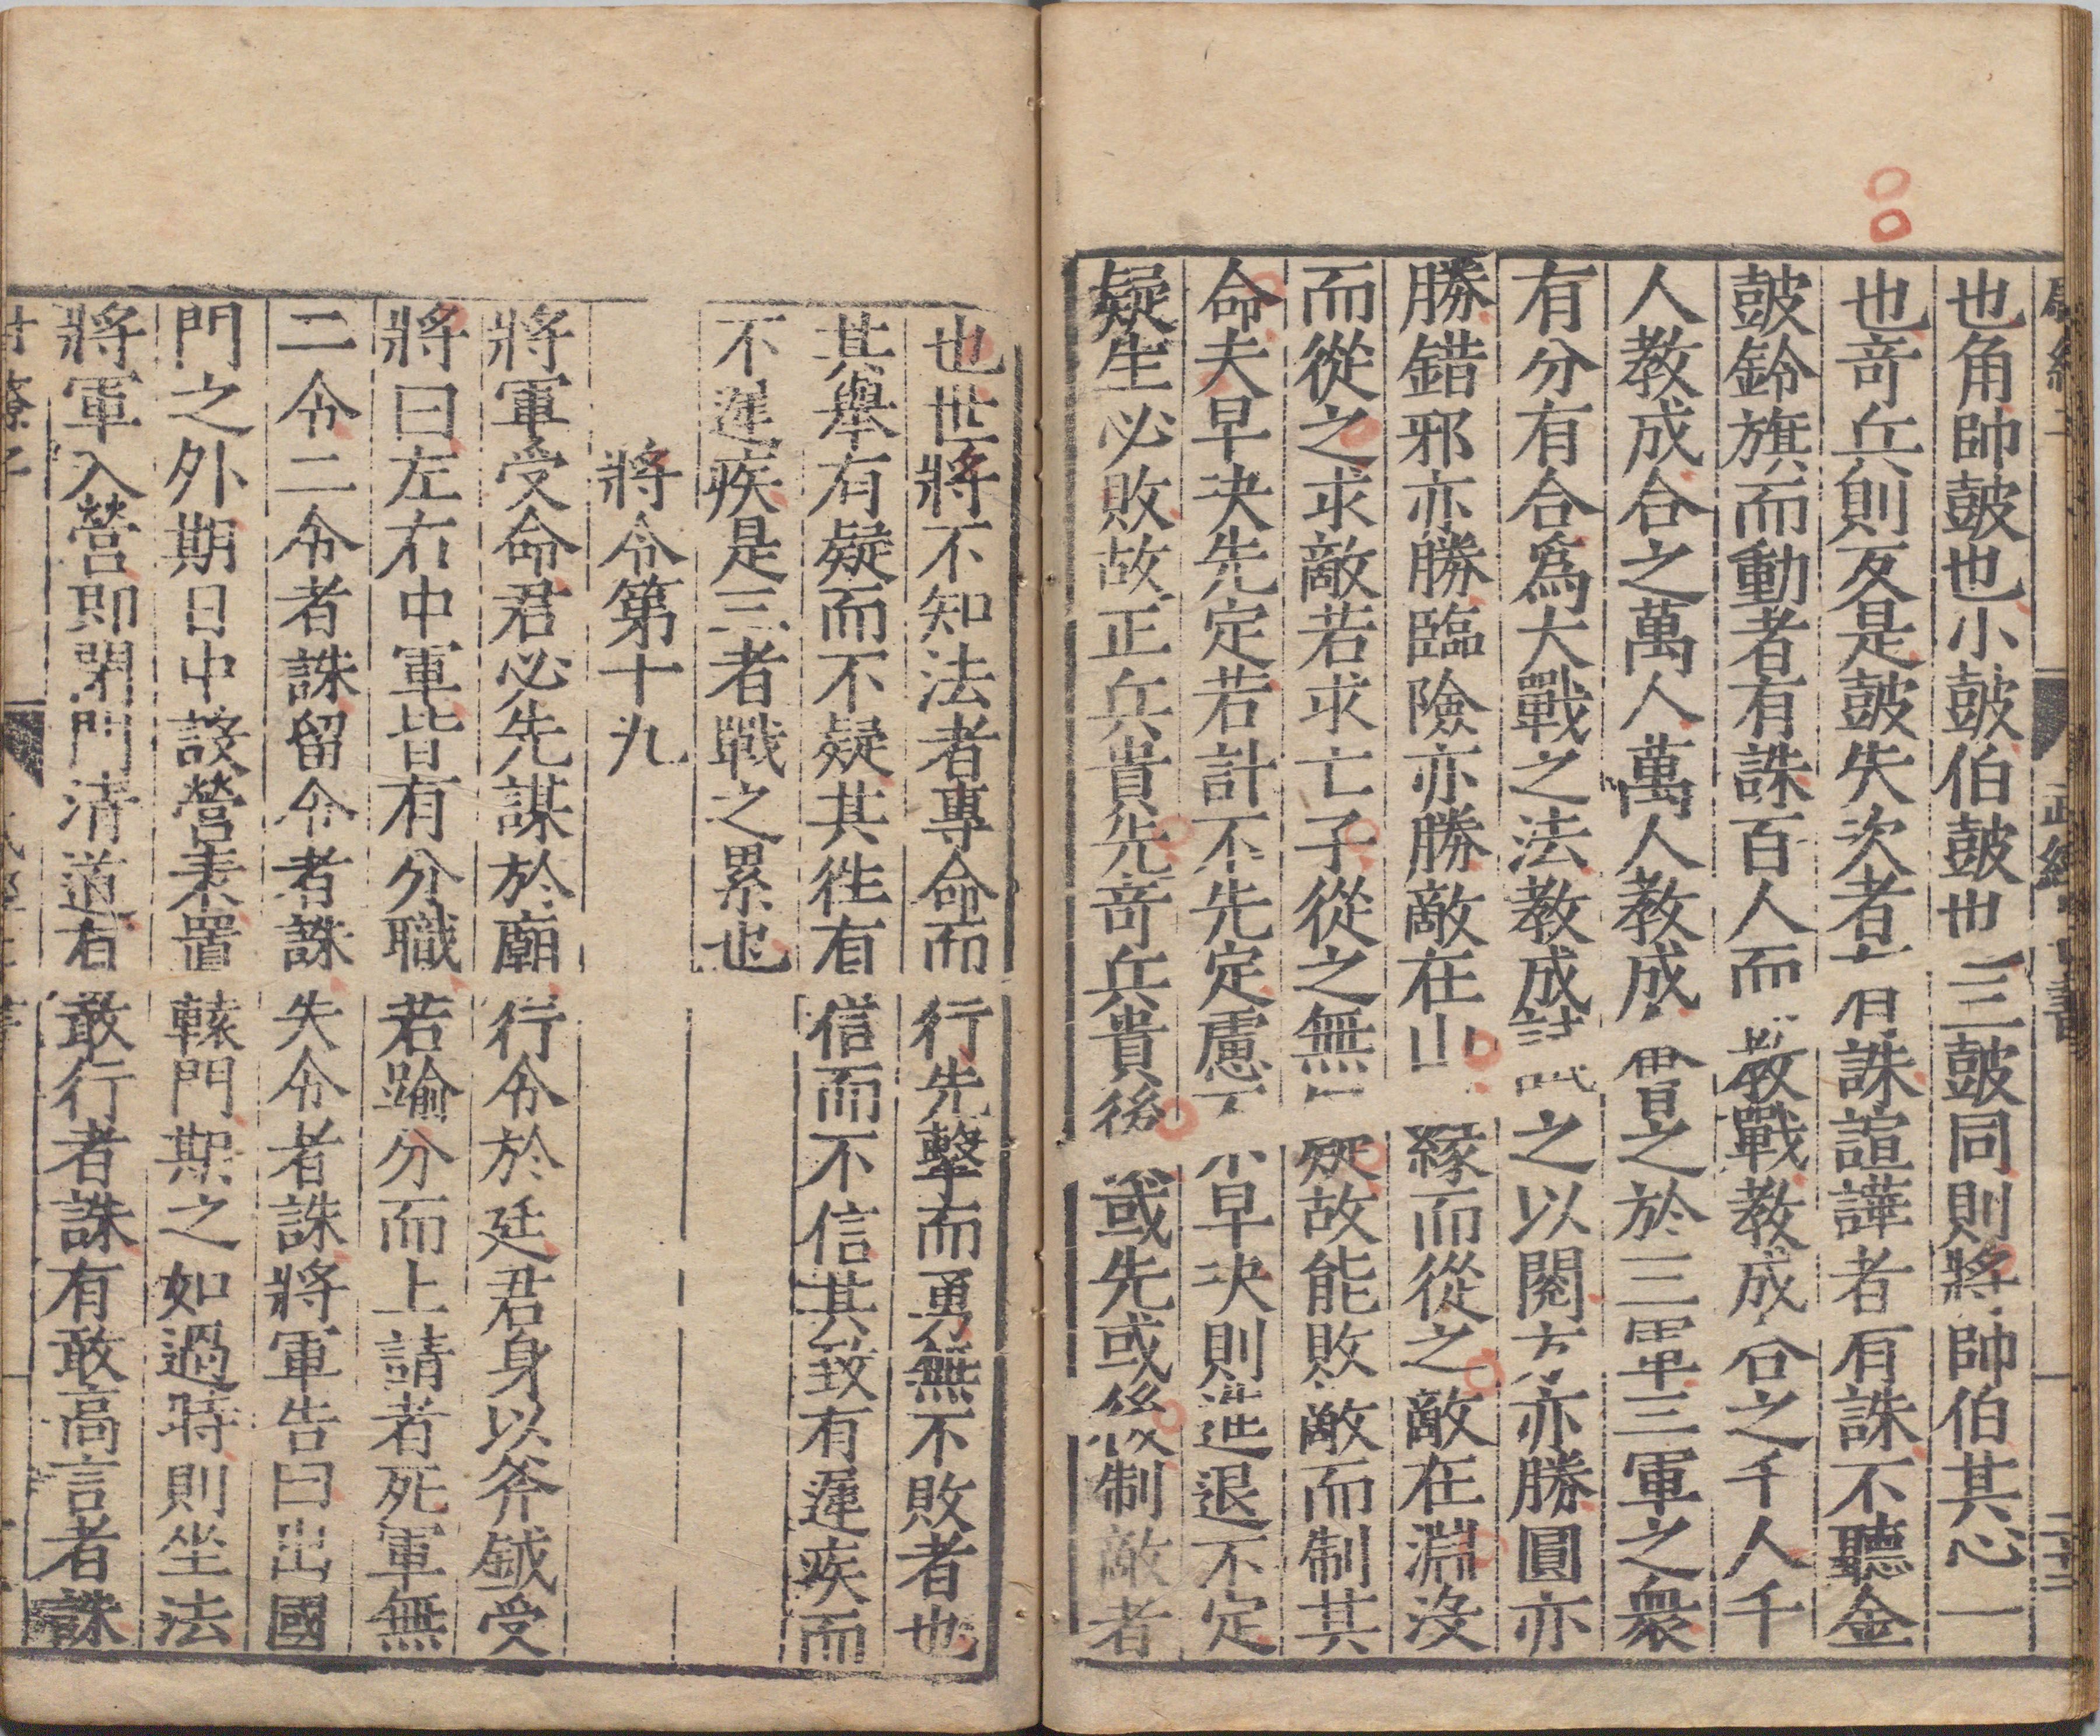 也角帥鼓也小鼓伯鼓也三鼓同則將帥伯其心一
也奇兵則反是鼓失次者有誅諠譁者有誅不聽金
鼓鈴旗而動者有誅百人而教戰教成合之千人千
人教成合之萬人萬人教成會之於三軍三軍之衆
有分有合爲大戰之法教成試之以閱方亦勝圓亦
勝錯邪亦勝臨險亦勝敵在山緣而從之敵在淵沒
而從之求敵若求亡子從之無疑故能敗敵而制其
命夫早决先定若計不先定慮不早决則進退不定
疑生必敗故正兵貴先奇兵貴後或先或後制敵者
也世將不知法者專命而行先擊而勇無不敗者也
其舉有疑而不疑其徃有信而不信其致有遲疾而
不遲疾是三者戰之累也
將令第十九
將軍受命君必先謀於廟行令於廷君身以斧鉞受
將曰左右中軍皆有分職若踰分而上請者死軍無
二令二令者誅留令者誅失令者誅將軍告曰出國
門之外期日中設營表置轅門期之如過時則坐法
將軍入營即閉門清道有敢行者誅有敢高言者誅